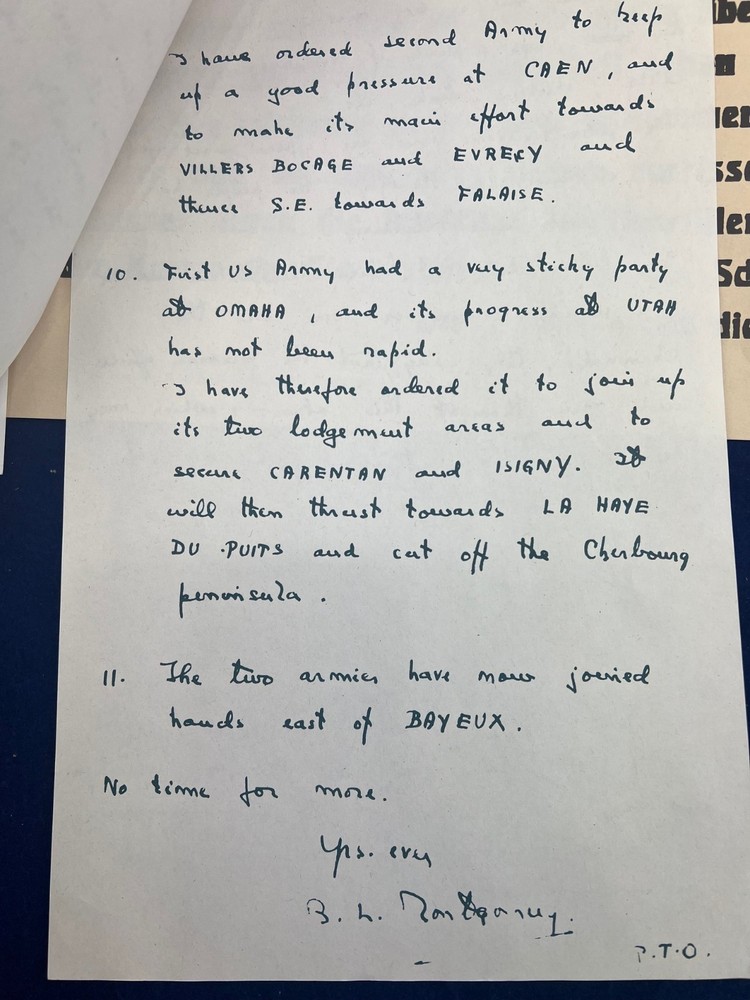 I have ordered Second Army to keep
up a good pressure at CAEN, and
to make its main effort towards
VILLERS BOCAGE and EVRECY and
thence S.E. towards FALAISE.
10. First US Army had a very sticky party
at OMAHA, and its progress at UTAH
has not been rapid.
I have therefore ordered it to join up
its two lodgement areas and to
secure CARENTAN and ISIGNY. It
will then thrust towards LA HAYE
DU PUITS and cut off the Cherbourg
peninsula.
11. The two armies have now joined
hands east of BAYEUX.
No time for more.
Yrs. ever
B. L. Montgomery.
P.T.O.